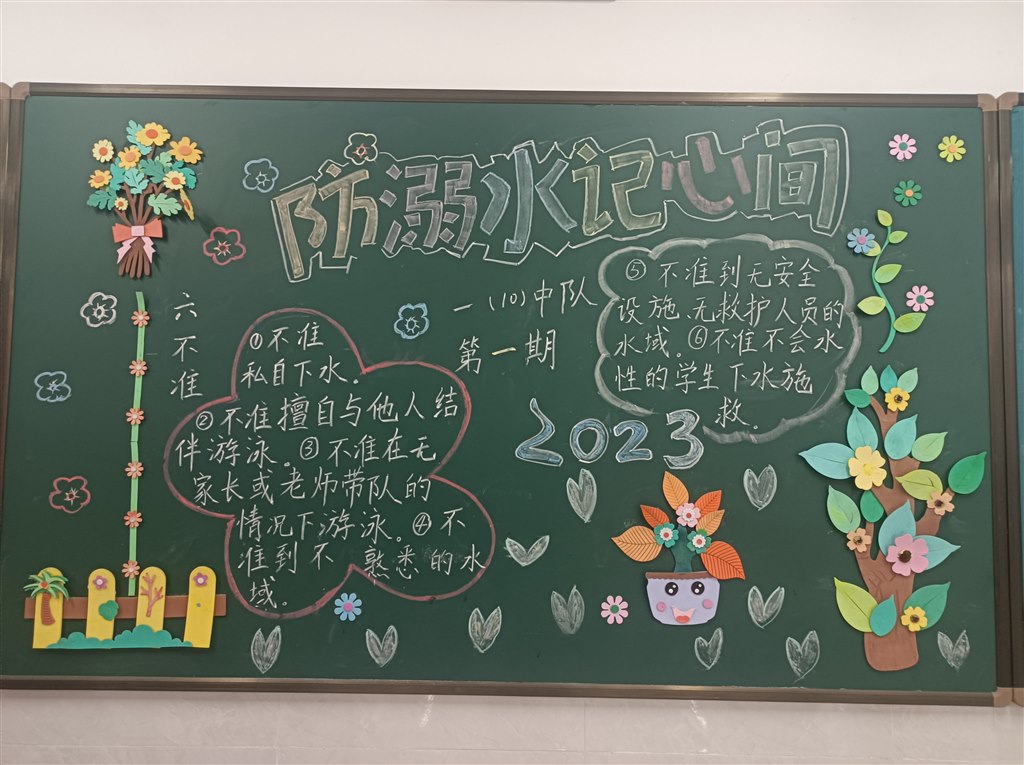 防溺水记心间
一(10)中队
第一期
2023
六不准
①不准
私自下水。
②不准擅自与他人结
伴游泳。③不准在无
家长或老师带队的
情况下游泳。④不
准到不熟悉的水
域。
⑤不准到无安全
设施、无救护人员的
水域。⑥不准不会水
性的学生下水施
救。